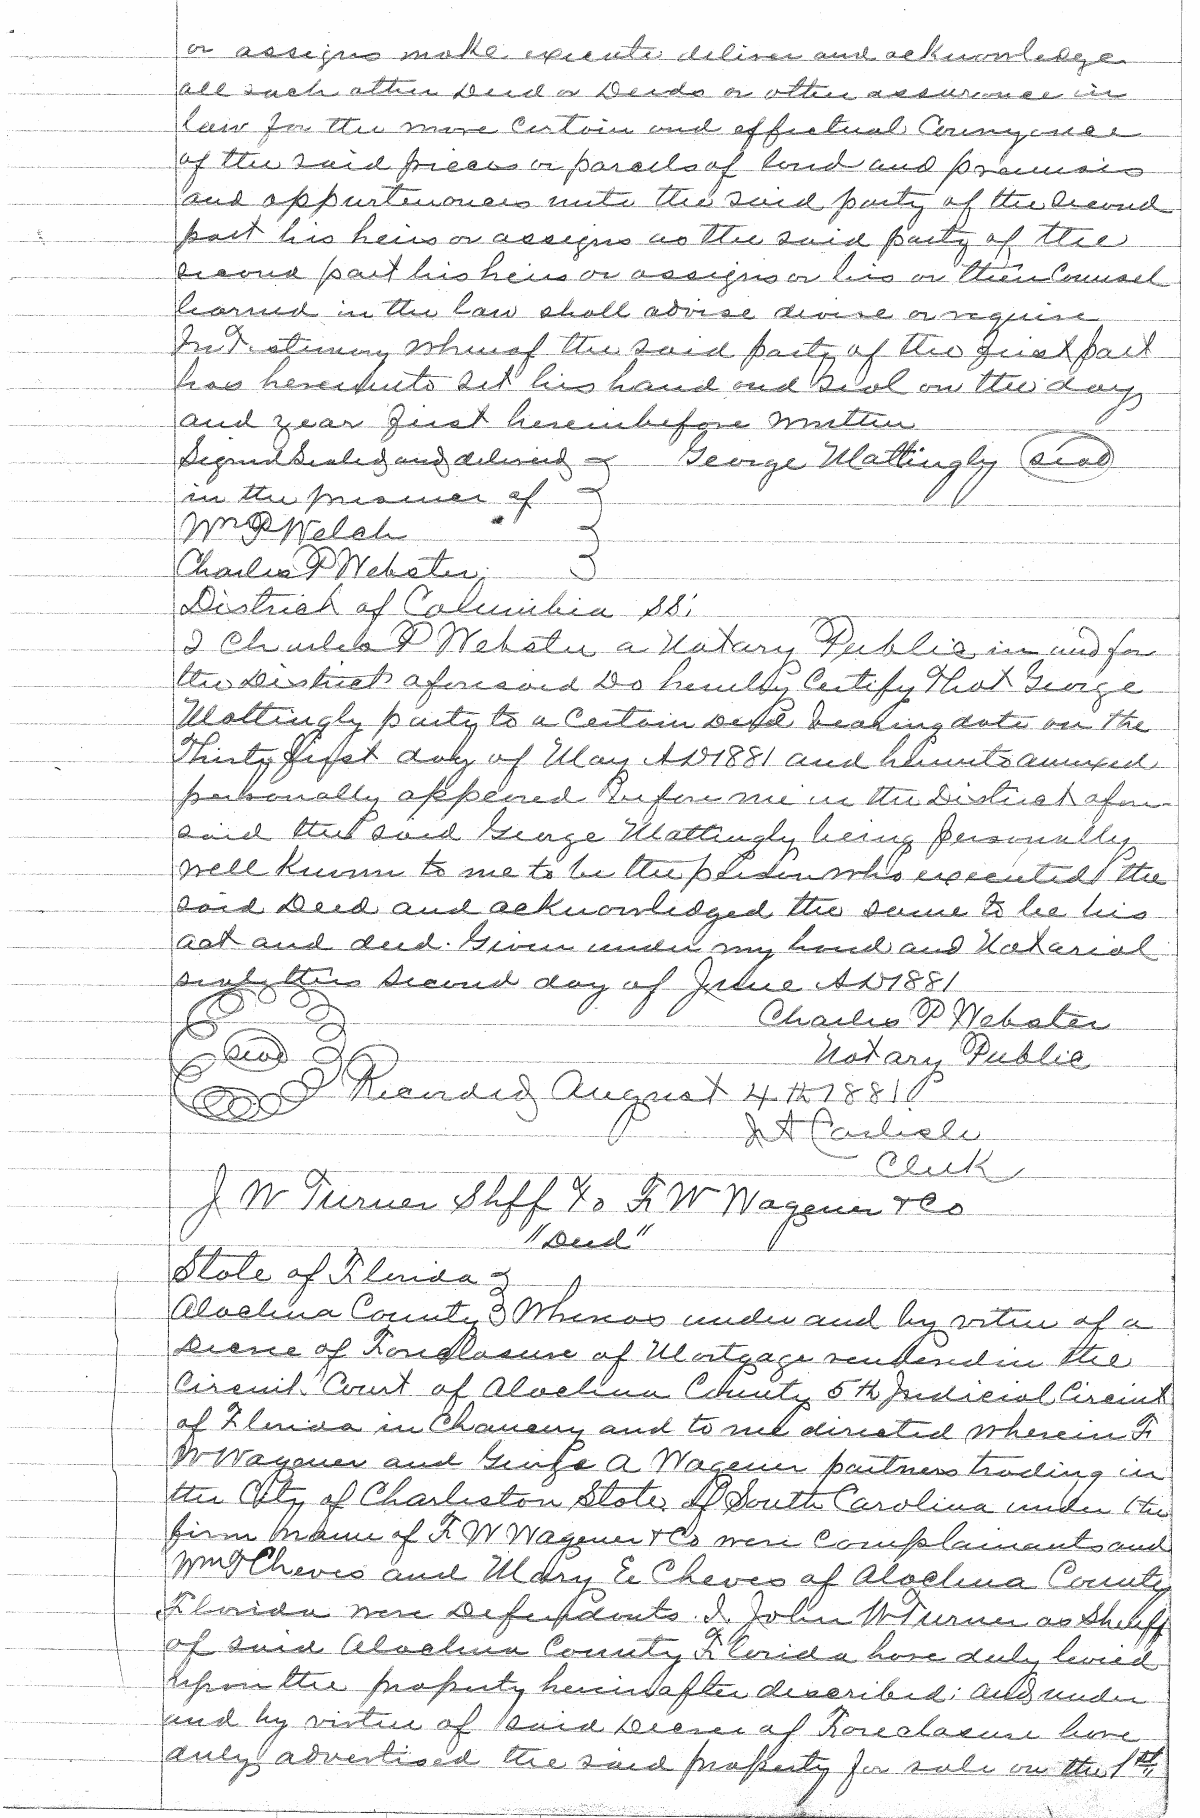 or assigns make execute deliver and acknowledge
all such other Deed or Deeds or other assurance in
law for the more Certain and effectual Conveyance
of the said pieces or parcels of land and premises
and appurtenances unto the said party of the Second
part his heirs or assigns as the said party of the
second part his heirs or assigns or his or their Counsel
learned in the law shall advise devise or require
In Testimony Whereof the said party of the first part
has hereunto set his hand and seal on the day
and year first hereinbefore written
Signed Sealed and delivered } George Mattingly (seal)
in the presence of }
Wm P Welch }
Charles P Webster }
District of Columbia SS:
I Charles P Webster a Notary Public in and for
the District aforesaid Do hereby Certify That George
Mattingly party to a Certain Deed bearing date on the
Thirty first day of May AD 1881 and hereto annexed
personally appeared before me in the District afore
said the said George Mattingly being personally
well known to me to be the person who executed the
said Deed and acknowledged the same to be his
act and deed. Given under my hand and Notarial
seal this second day of June AD 1881
Charles P Webster
(seal) Notary Public
Recorded August 4th 1881
J A Carlisle
Clerk
J W Turner Shff To F W Wagener & Co
"Deed"
State of Florida }
Alachua County } Whereas under and by virtue of a
Decree of Foreclosure of Mortgage rendered in the
Circuit Court of Alachua County 5th Judicial Circuit
of Florida in Chancery and to me directed wherein F
W Wagener and George A Wagener partners trading in
the City of Charleston State of South Carolina under the
firm name of F W Wagener & Co were Complainants and
Wm F Cheves and Mary E Cheves of Alachua County
Florida were Defendants. I, John W Turner as Sheriff
of said Alachua County Florida have duly levied
upon the property hereinafter described; and under
and by virtue of said Decree of Foreclosure have
duly advertised the said property for sale on the 1st